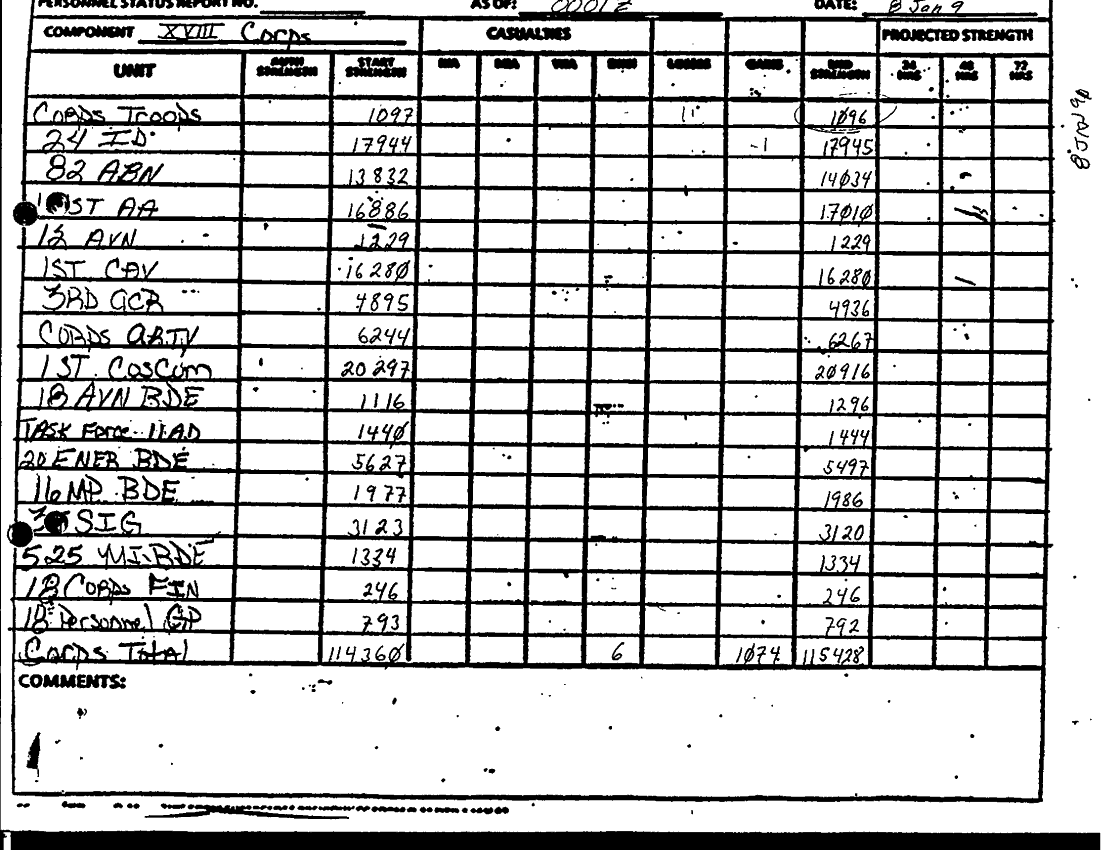 PERSONNEL STATUS REPORT NO. AS OF: 0001 Z DATE: 8 Jan 9
COMPONENT XVIII Corps CASUALTIES PROJECTED STRENGTH
UNIT AUTH STRENGTH START STRENGTH KIA MIA WIA DNBI LOSSES GAINS END STRENGTH 24 HRS 48 HRS 72 HRS
Corps Troops 1097 1096
24 ID 17944 1 17945
82 ABN 13832 14034
ST AA 16886 17010
12 AVN 1229 1229
1ST CAV 16280 16280
3RD ACR 4895 4936
CORPS ARTY 6244 6267
1ST CosCom 20297 20916
18 AVN BDE 1116 1296
TASK Force 11 AD 1440 1444
20 ENER BDE 5627 5497
16 MP BDE 1977 1986
SIG 3123 3120
525 MI BDE 1334 1334
18 Corps FIN 246 246
18 Personnel GP 793 792
Corps Total 114360 6 1074 115428
COMMENTS:
8 JAN 90